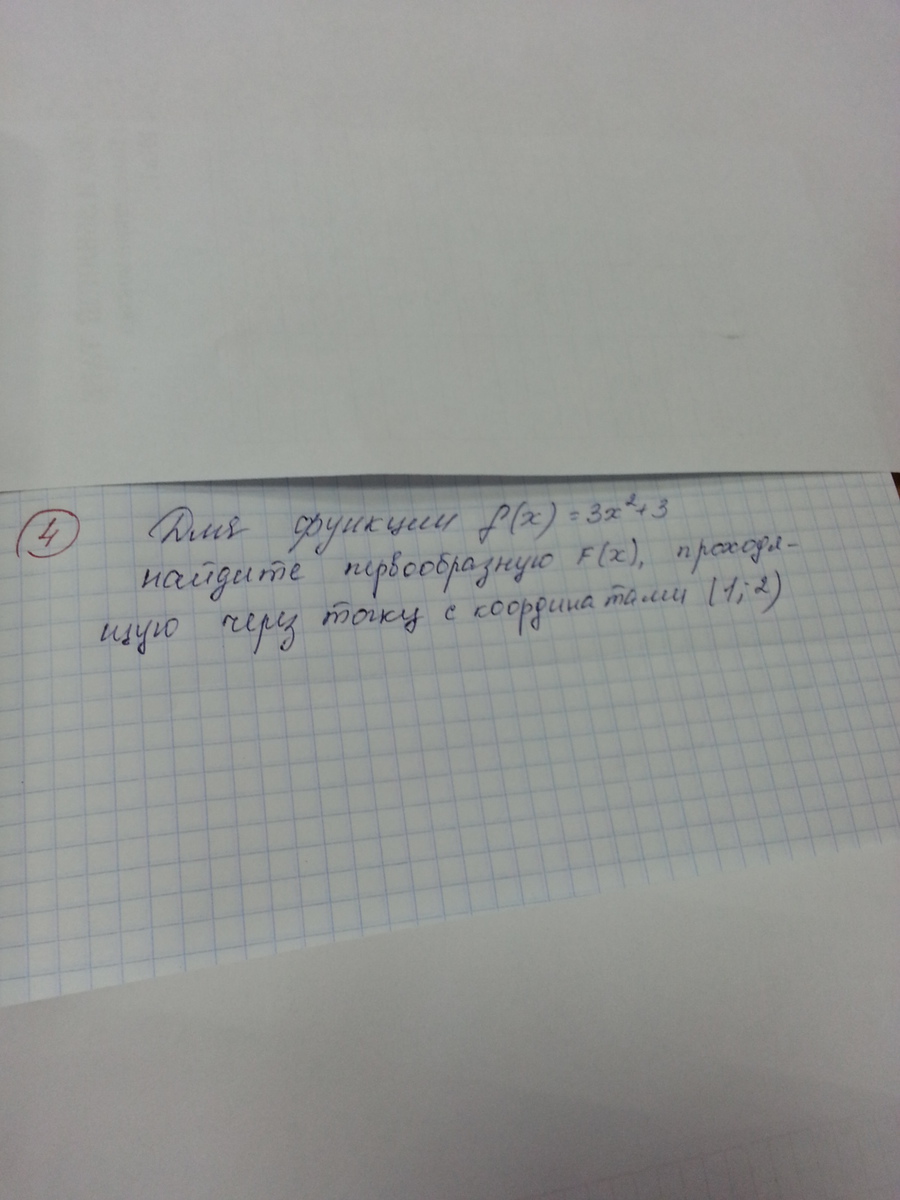 4 Для функции f(x) = 3x²+3
найдите первообразную F(x), проходя-
щую через точку с координатами (1; 2)